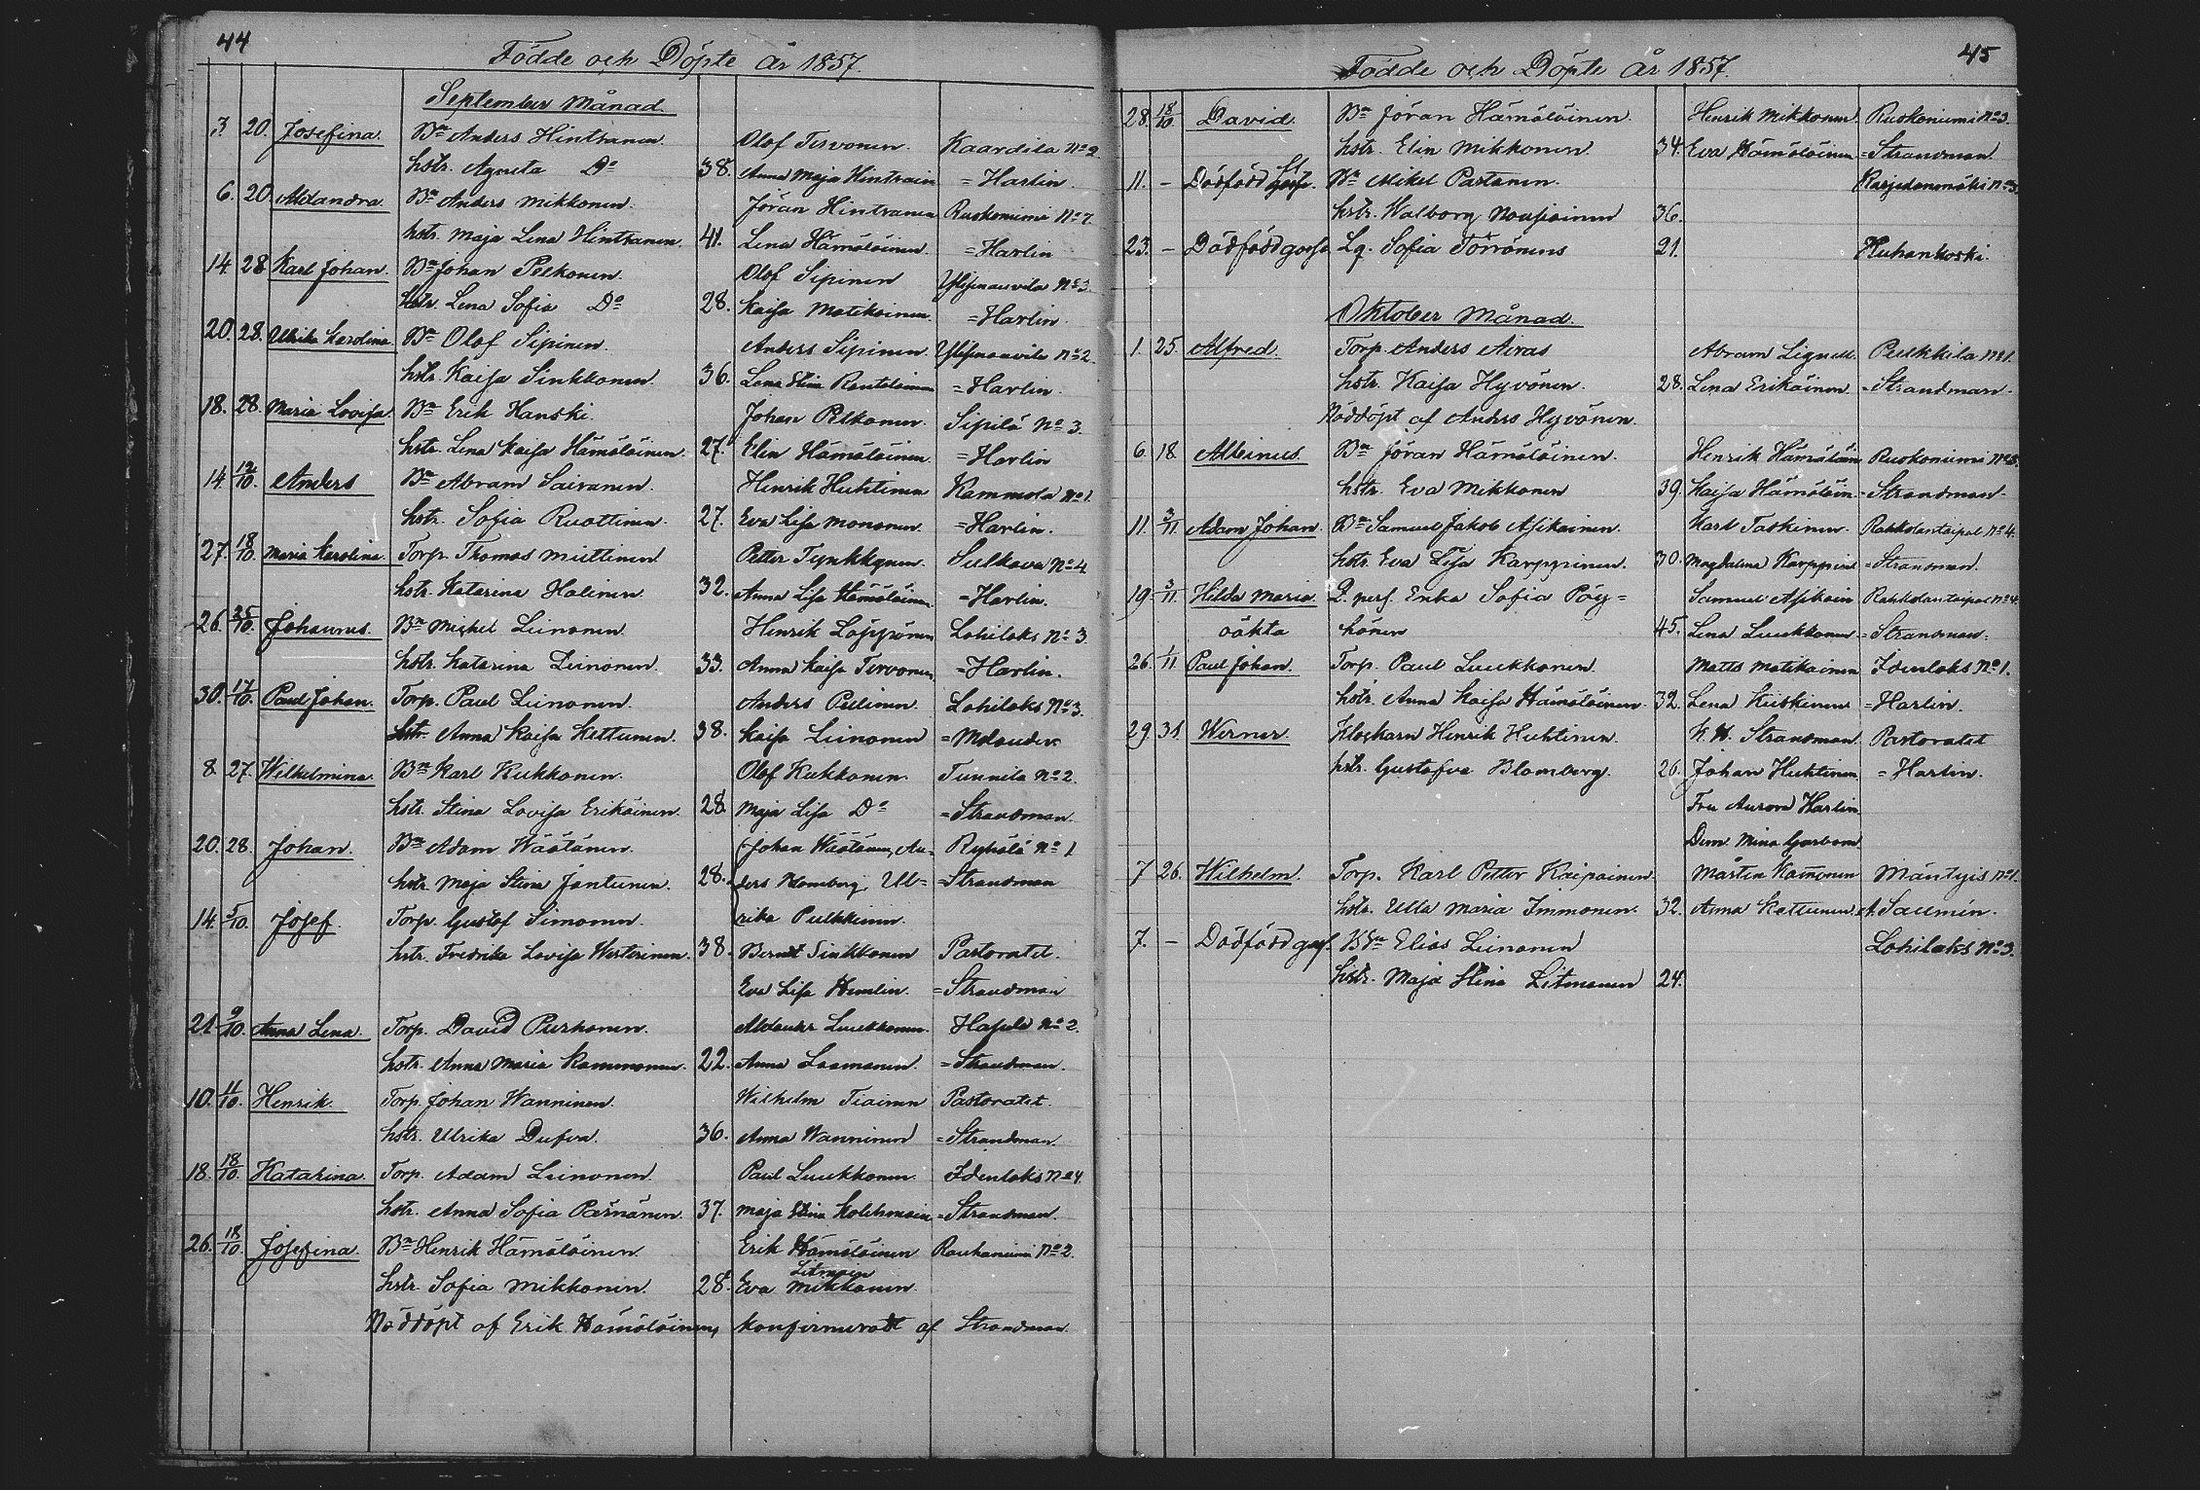 44
Födde och Döpte år 1857.
September Månad.
3. 20. Josefina. Bn Anders Hintranen. Olof Tervonen. Kaardila No 2.
hstr. Agneta Do 38. Anna Maja Hintrain = Harlin.
6. 20. Alexandra. Bn Anders Mikkonen. Jöran Hintranen Ruokoniemi No 7.
hstr. Maja Lena Hintranen. 41. Lena Hämäläinen. = Harlin
14. 28. Karl Johan. Bn Johan Pelkonen. Olof Sipinen No 3.
hstr. Lena Sofia Do 28. Kaisa Matikainen. = Harlin
20. 28. Ulrika Karolina. Bn Olof Sipinen. Anders Sipinen No 2.
hstr. Kaisa Sinkkonen. 36. Lena Stina Rantalainen = Harlin.
18. 28. Maria Lovisa. Bn Erik Hanski. Johan Pelkonen. Sipilä No 3.
hstr. Lena Kaisa Hämäläinen. 27. Elin Hämäläinen. = Harlin
14. 12/10. Anders Bn Abram Sairanen. Henrik Huhtinen Kammola No 1.
hstr. Sofia Ruottinen. 27. Eva Lisa Mononen. = Harlin.
27. 18/10. Maria Karolina. Torp. Thomas Miettinen Petter Tynkkynen. Sulkava No 4
hstr. Katarina Halinen 32. Anna Lisa Hämäläinen. = Harlin.
26. 25/10. Johannes. Bn Mickel Liinonen Henrik Löppönen Lohilaks No 3
hstr. Katarina Liinonen. 33. Anna Kaisa Tervonen. = Harlin.
30. 17/10. Paul Johan. Torp. Paul Liinonen. Anders Pulinen. Lohilaks No 3.
hstr. Anna Kaisa Kettunen. 38. Kaisa Liinonen = Molander
8. 27. Wilhelmina. Bn Karl Kukkonen. Olof Kukkonen. Tunnila No 2.
hstr. Stina Lovisa Erikäinen. 28. Maja Lisa Do = Strandman.
20. 28. Johan. Bn Adam Väätänen. Johan Väätänen, An- Ryhälä No 1
hstr. Maja Stina Jantunen. 28. ders Homberg, Ul= =Strandman
14. 5/10. Josef. Torp. Gustaf Simonen. rika Pulkkinen.
hstr. Fredrika Lovisa Westerinen. 38. Berndt Sinkkonen Pastoratet.
Eva Lisa Hemlin. = Strandman
21. 9/10. Anna Lena. Torp. David Purhonen. Alexander Luukkonen. Hapala No 2.
hstr. Anna Maria Kammonen. 22. Anna Laamanen. = Strandman.
10. 11/10. Henrik. Torp. Johan Wanninen. Wilhelm Tiainen Pastoratet.
hstr. Ulrika Dufva. 36. Anna Wanninen = Strandman.
18. 18/10. Katarina. Torp. Adam Liinonen Paul Luukkonen. Idenlaks No 4.
hstr. Anna Sofia Pärnänen. 37. Maja Stina Kolehmain = Strandman.
26. 18/10. Josefina. Bn Henrik Hämäläinen. Erik Hämäläinen Rauhaniemi No 2.
hstr. Sofia Mikkonen. 28. Eva Mikkonen. Litmain
Nöddöpt af Erik Hämäläinen, konfirmeradt af Strandman.
45
Födde och Döpte år 1857.
28. 18/10. David. Bn Jöran Hämäläinen. Henrik Mikkonen Ruokoniemi No 3.
hstr. Elin Mikkonen. 34. Eva Hämäläinen = Strandman
11. – Dödfödd gosse. Bn Mikel Partanen. No 3.
hstr. Walborg Nousiainen 36.
23. – Dödfödd gosse Lq. Sofia Törrönens 21. Kuhankoski.
Oktober Månad.
1. 25. Alfred. Torp. Anders Airas Abram Lignell. Pulkkila No 1.
hstr. Kaisa Hyvönen. 28. Lena Erikäinen. = Strandman.
Nöddöpt af Anders Hyvönen.
6. 18. Albinus. Bn Jöran Hämäläinen. Henrik Hämäläinen Ruokoniemi No 3.
hstr. Eva Mikkonen 39. Kaisa Hämäläin = Strandman.
11. 3/11. Adam Johan. Bn Samuel Jakob Asikainen. Karl Taskinen. Rahkolantaipal No 4.
hstr. Eva Lisa Karppinen. 30. Magdalena Karppinen = Strandman.
19. 3/11. Hilda Maria Q. pers. Erika Sofia Pöy= Samuel Asikain Rahkolantaipal No 4.
oäkta hönen 45. Lena Luukkonen = Strandman.
26. 1/11 Paul Johan. Torp. Paul Luukkonen Matts Matikainen Idenlaks No 1.
hstr. Anna Kaisa Hämäläinen. 32. Lena Kiiskinen = Harlin.
29 31. Werner. Klockarn Henrik Huhtinen. K. H. Strandman. Pastoratet
hstr. Gustafva Blomberg. 26. Johan Huhtinen = Harlin.
Fru Aurora Harlin
Dem. Mina
7 26. Wilhelm. Torp. Karl Petter Kaipainen Mårten Kammonen Mäntyis No 1.
hstr. Ulla Maria Immonen. 32. Anna Kettunen. A. Salmén.
7. – Dödfödd goss. Elias Liinonen Lohilaks No 3.
hstr. Maja Stina Litmanen 24.